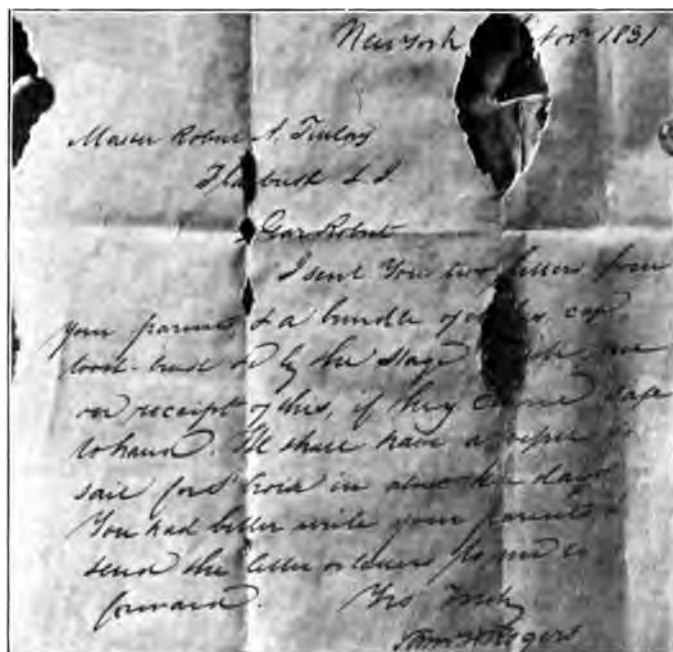 New York Nov 1831
Master Robert A. Finlay
Flatbush L. I.
Dear Robert
I sent You two letters from
Your parents & a bundle of cap,
tooth-brush &c by the Stage me
on receipt of this, if they Came safe
to hand. I shall have a
sail for in about ten days
You had better write your parents &
send the letter or letters to me to
forward. Yrs Truly
Rogers